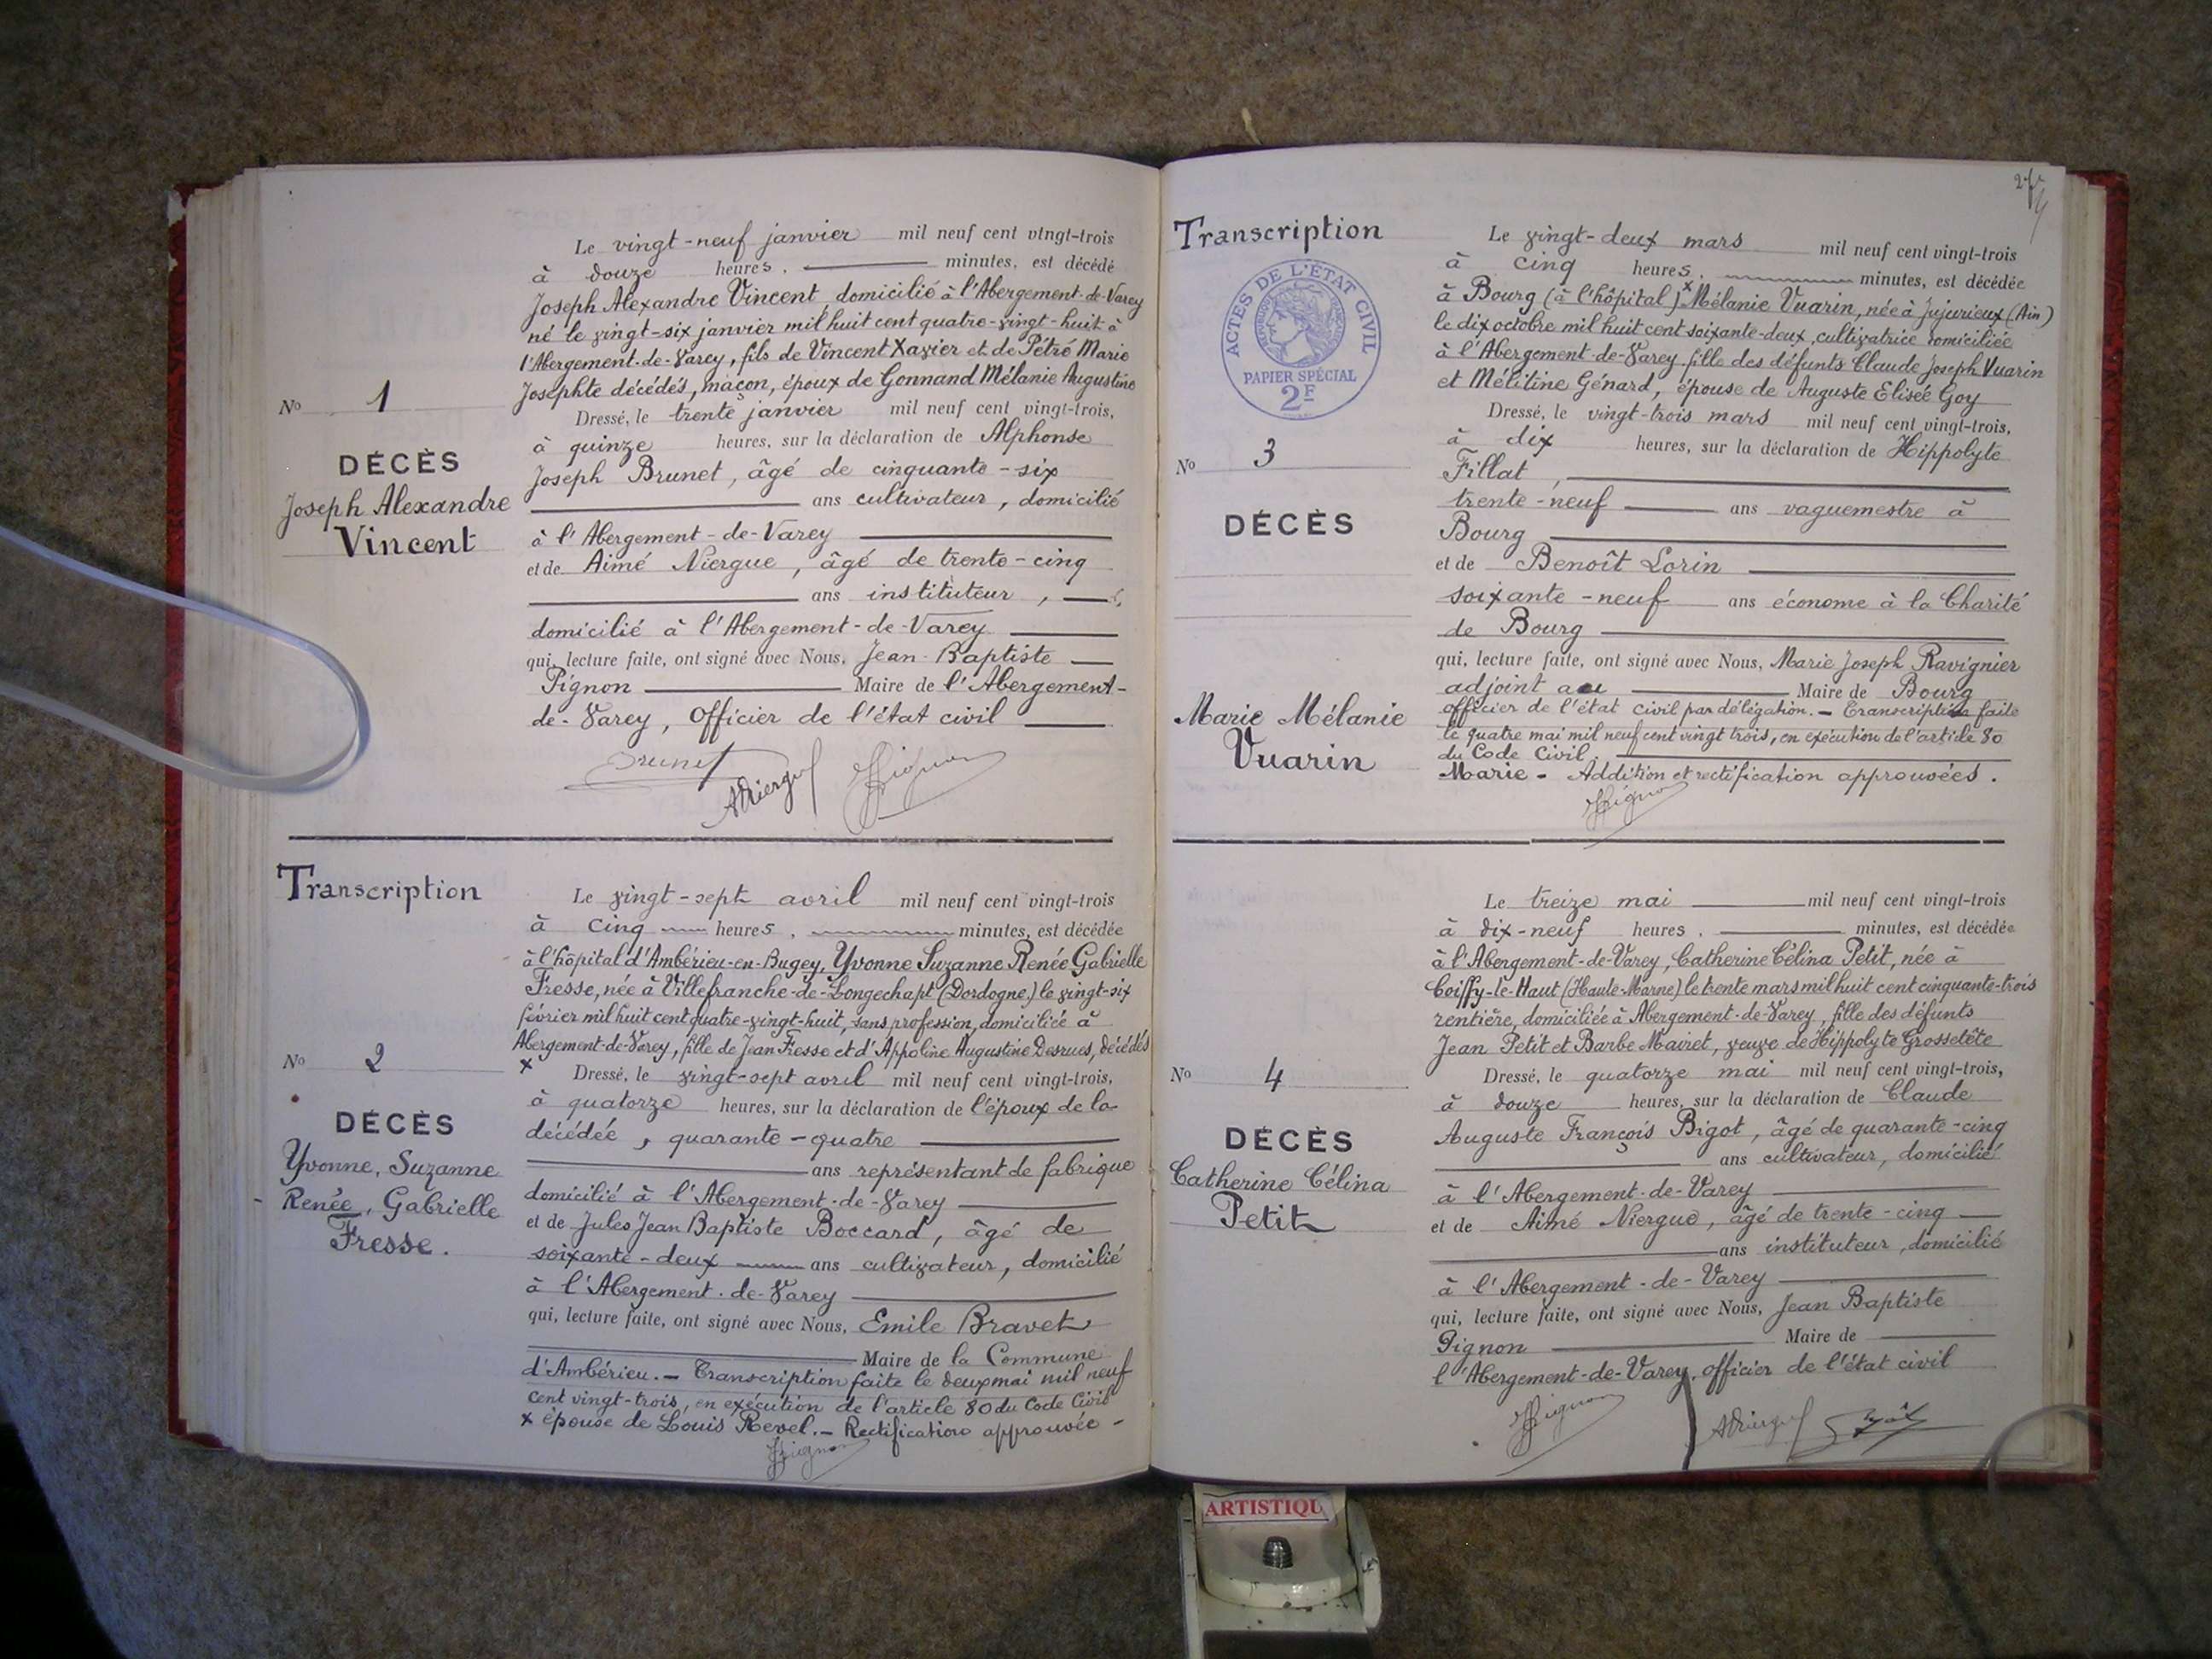 Le vingt-neuf janvier mil neuf cent vingt-trois
à douze heures, minutes, est décédé
Joseph Alexandre Vincent domicilié à l'Abergement-de-Varey
né le vingt-six janvier mil huit cent quatre-vingt-huit à
l'Abergement-de-Varey, fils de Vincent Xavier et de Pétré Marie
Josephte décédés, maçon, époux de Gonnand Mélanie Augustine
No 1
Dressé, le trente janvier mil neuf cent vingt-trois,
à quinze heures, sur la déclaration de Alphonse
DÉCÈS
Joseph Brunet, âgé de cinquante-six
Joseph Alexandre
ans cultivateur, domicilié
Vincent
à l'Abergement-de-Varey
et de Aimé Niergue, âgé de trente-cinq
ans instituteur,
domicilié à l'Abergement-de-Varey
qui, lecture faite, ont signé avec Nous, Jean-Baptiste
Pignon Maire de l'Abergement-
de-Varey, Officier de l'état civil
Brunet ANiergue JBPignon
Transcription
Le vingt-sept avril mil neuf cent vingt-trois
à cinq heures, minutes, est décédée
à l'hôpital d'Ambérieu-en-Bugey, Yvonne Suzanne Renée Gabrielle
Fresse, née à Villefranche-de-Longechapt (Dordogne) le vingt-six
février mil huit cent quatre-vingt-huit, sans profession, domiciliée à
Abergement-de-Varey, fille de Jean Fresse et d'Appoline Augustine Desrues, décédés
No 2
x Dressé, le vingt-sept avril mil neuf cent vingt-trois,
à quatorze heures, sur la déclaration de l'époux de la
DÉCÈS
décédée, quarante-quatre
Yvonne, Suzanne
ans représentant de fabrique
Renée, Gabrielle
domicilié à l'Abergement-de-Varey
Fresse.
et de Jules Jean Baptiste Boccard, âgé de
soixante-deux ans cultivateur, domicilié
à l'Abergement-de-Varey
qui, lecture faite, ont signé avec Nous, Emile Bravet
Maire de la Commune
d'Ambérieu. - Transcription faite le deux mai mil neuf
cent vingt-trois, en exécution de l'article 80 du Code Civil
x épouse de Louis Revel. - Rectification approuvée -
JBPignon
Transcription
ACTES DE L'ÉTAT CIVIL
PAPIER SPÉCIAL
2F
Le vingt-deux mars mil neuf cent vingt-trois
à cinq heures, minutes, est décédée
à Bourg (à l'hôpital) x Mélanie Vuarin, née à Jujurieux (Ain)
le dix octobre mil huit cent soixante-deux, cultivatrice domiciliée
à l'Abergement-de-Varey fille des défunts Claude Joseph Vuarin
et Mélitine Génard, épouse de Auguste Elisée Goy
Dressé, le vingt-trois mars mil neuf cent vingt-trois,
à dix heures, sur la déclaration de Hippolyte
No 3
Fillat,
trente-neuf ans vaguemestre à
DÉCÈS
Bourg
et de Benoît Lorin
soixante-neuf ans économe à la Charité
de Bourg
qui, lecture faite, ont signé avec Nous, Marie Joseph Ravignier
adjoint au Maire de Bourg
Marie Mélanie
officier de l'état civil par délégation. - Transcription faite
le quatre mai mil neuf cent vingt trois, en exécution de l'article 80
Vuarin
du Code Civil
Marie - Addition et rectification approuvées.
JBPignon
Le treize mai mil neuf cent vingt-trois
à dix-neuf heures, minutes, est décédée
à l'Abergement-de-Varey, Catherine Célina Petit, née à
Coiffy-le-Haut (Haute-Marne) le trente mars mil huit cent cinquante-trois
rentière, domiciliée à Abergement-de-Varey, fille des défunts
Jean Petit et Barbe Mairet, veuve de Hippolyte Grossetête
No 4
Dressé, le quatorze mai mil neuf cent vingt-trois,
à douze heures, sur la déclaration de Claude
DÉCÈS
Auguste François Bigot, âgé de quarante-cinq
Catherine Célina
ans cultivateur, domicilié
Petit
à l'Abergement-de-Varey
et de Aimé Niergue, âgé de trente-cinq
ans instituteur, domicilié
à l'Abergement-de-Varey
qui, lecture faite, ont signé avec Nous, Jean Baptiste
Pignon Maire de
l'Abergement-de-Varey, officier de l'état civil
JBPignon ANiergue
ARTISTIQU